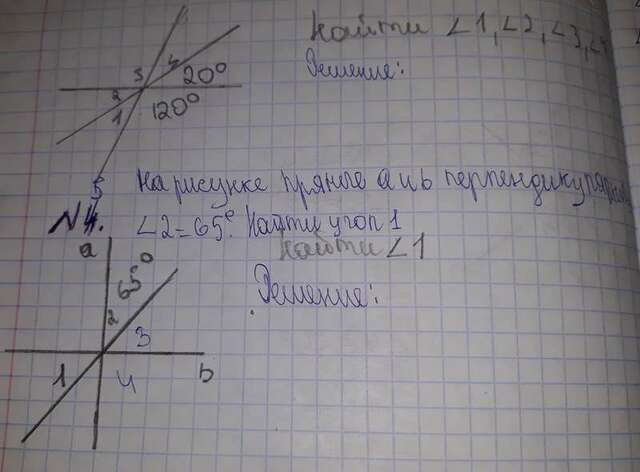 Найти ∠1, ∠2, ∠3, ∠4
Решение:
3 4 20°
2
1 120°
На рисунке прямые a и b перпендикулярны
N4. ∠2=65°. Найти угол 1
Найти ∠1
Решение:
a
65°
2
3
1 4 b